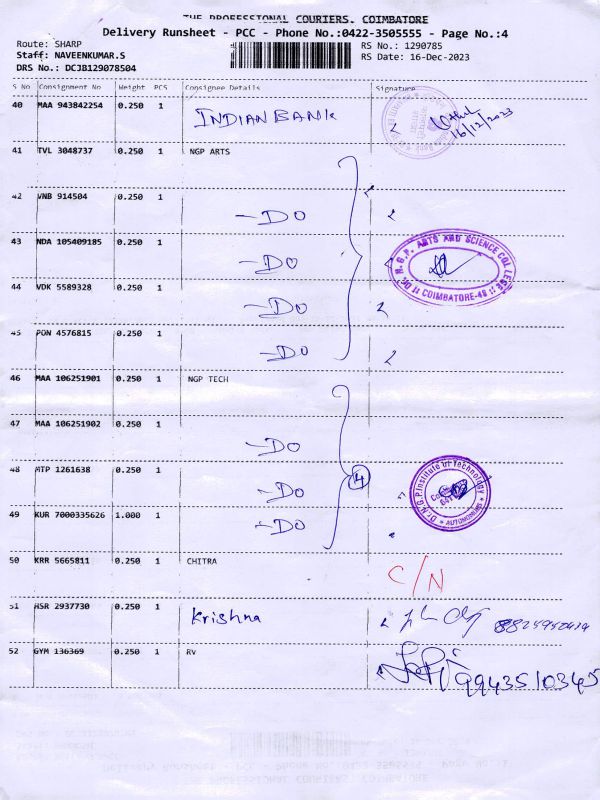 THE PROFESSIONAL COURIERS, COIMBATORE
Delivery Runsheet - PCC - Phone No.:0422-3505555 - Page No.:4
Route: SHARP
Staff: NAVEENKUMAR.S
DRS No.: DCJB129078504
RS No.: 1290785
RS Date: 16-Dec-2023
S No Consignment No Weight PCS Consignee Details Signature
40 MAA 943842254 0.250 1 INDIAN BANK
16/12/2023
41 TVL 3048737 0.250 1 NGP ARTS
42 VNB 914504 0.250 1
-DO
43 NDA 105409185 0.250 1
-DO
DR. N.G.P. ARTS AND SCIENCE COLLEGE
COIMBATORE-48
44 VDK 5589328 0.250 1
-DO
45 PON 4576815 0.250 1
-DO
46 MAA 106251901 0.250 1 NGP TECH
47 MAA 106251902 0.250 1
-DO
48 ATP 1261638 0.250 1
-DO
4
Dr. N.G.P. Institute of Technology
AUTONOMOUS
49 KUR 7000335626 1.000 1
-DO
50 KRR 5665811 0.250 1 CHITRA
C/N
51 HSR 2937730 0.250 1 Krishna
52 GYM 136369 0.250 1 RV
9943510345